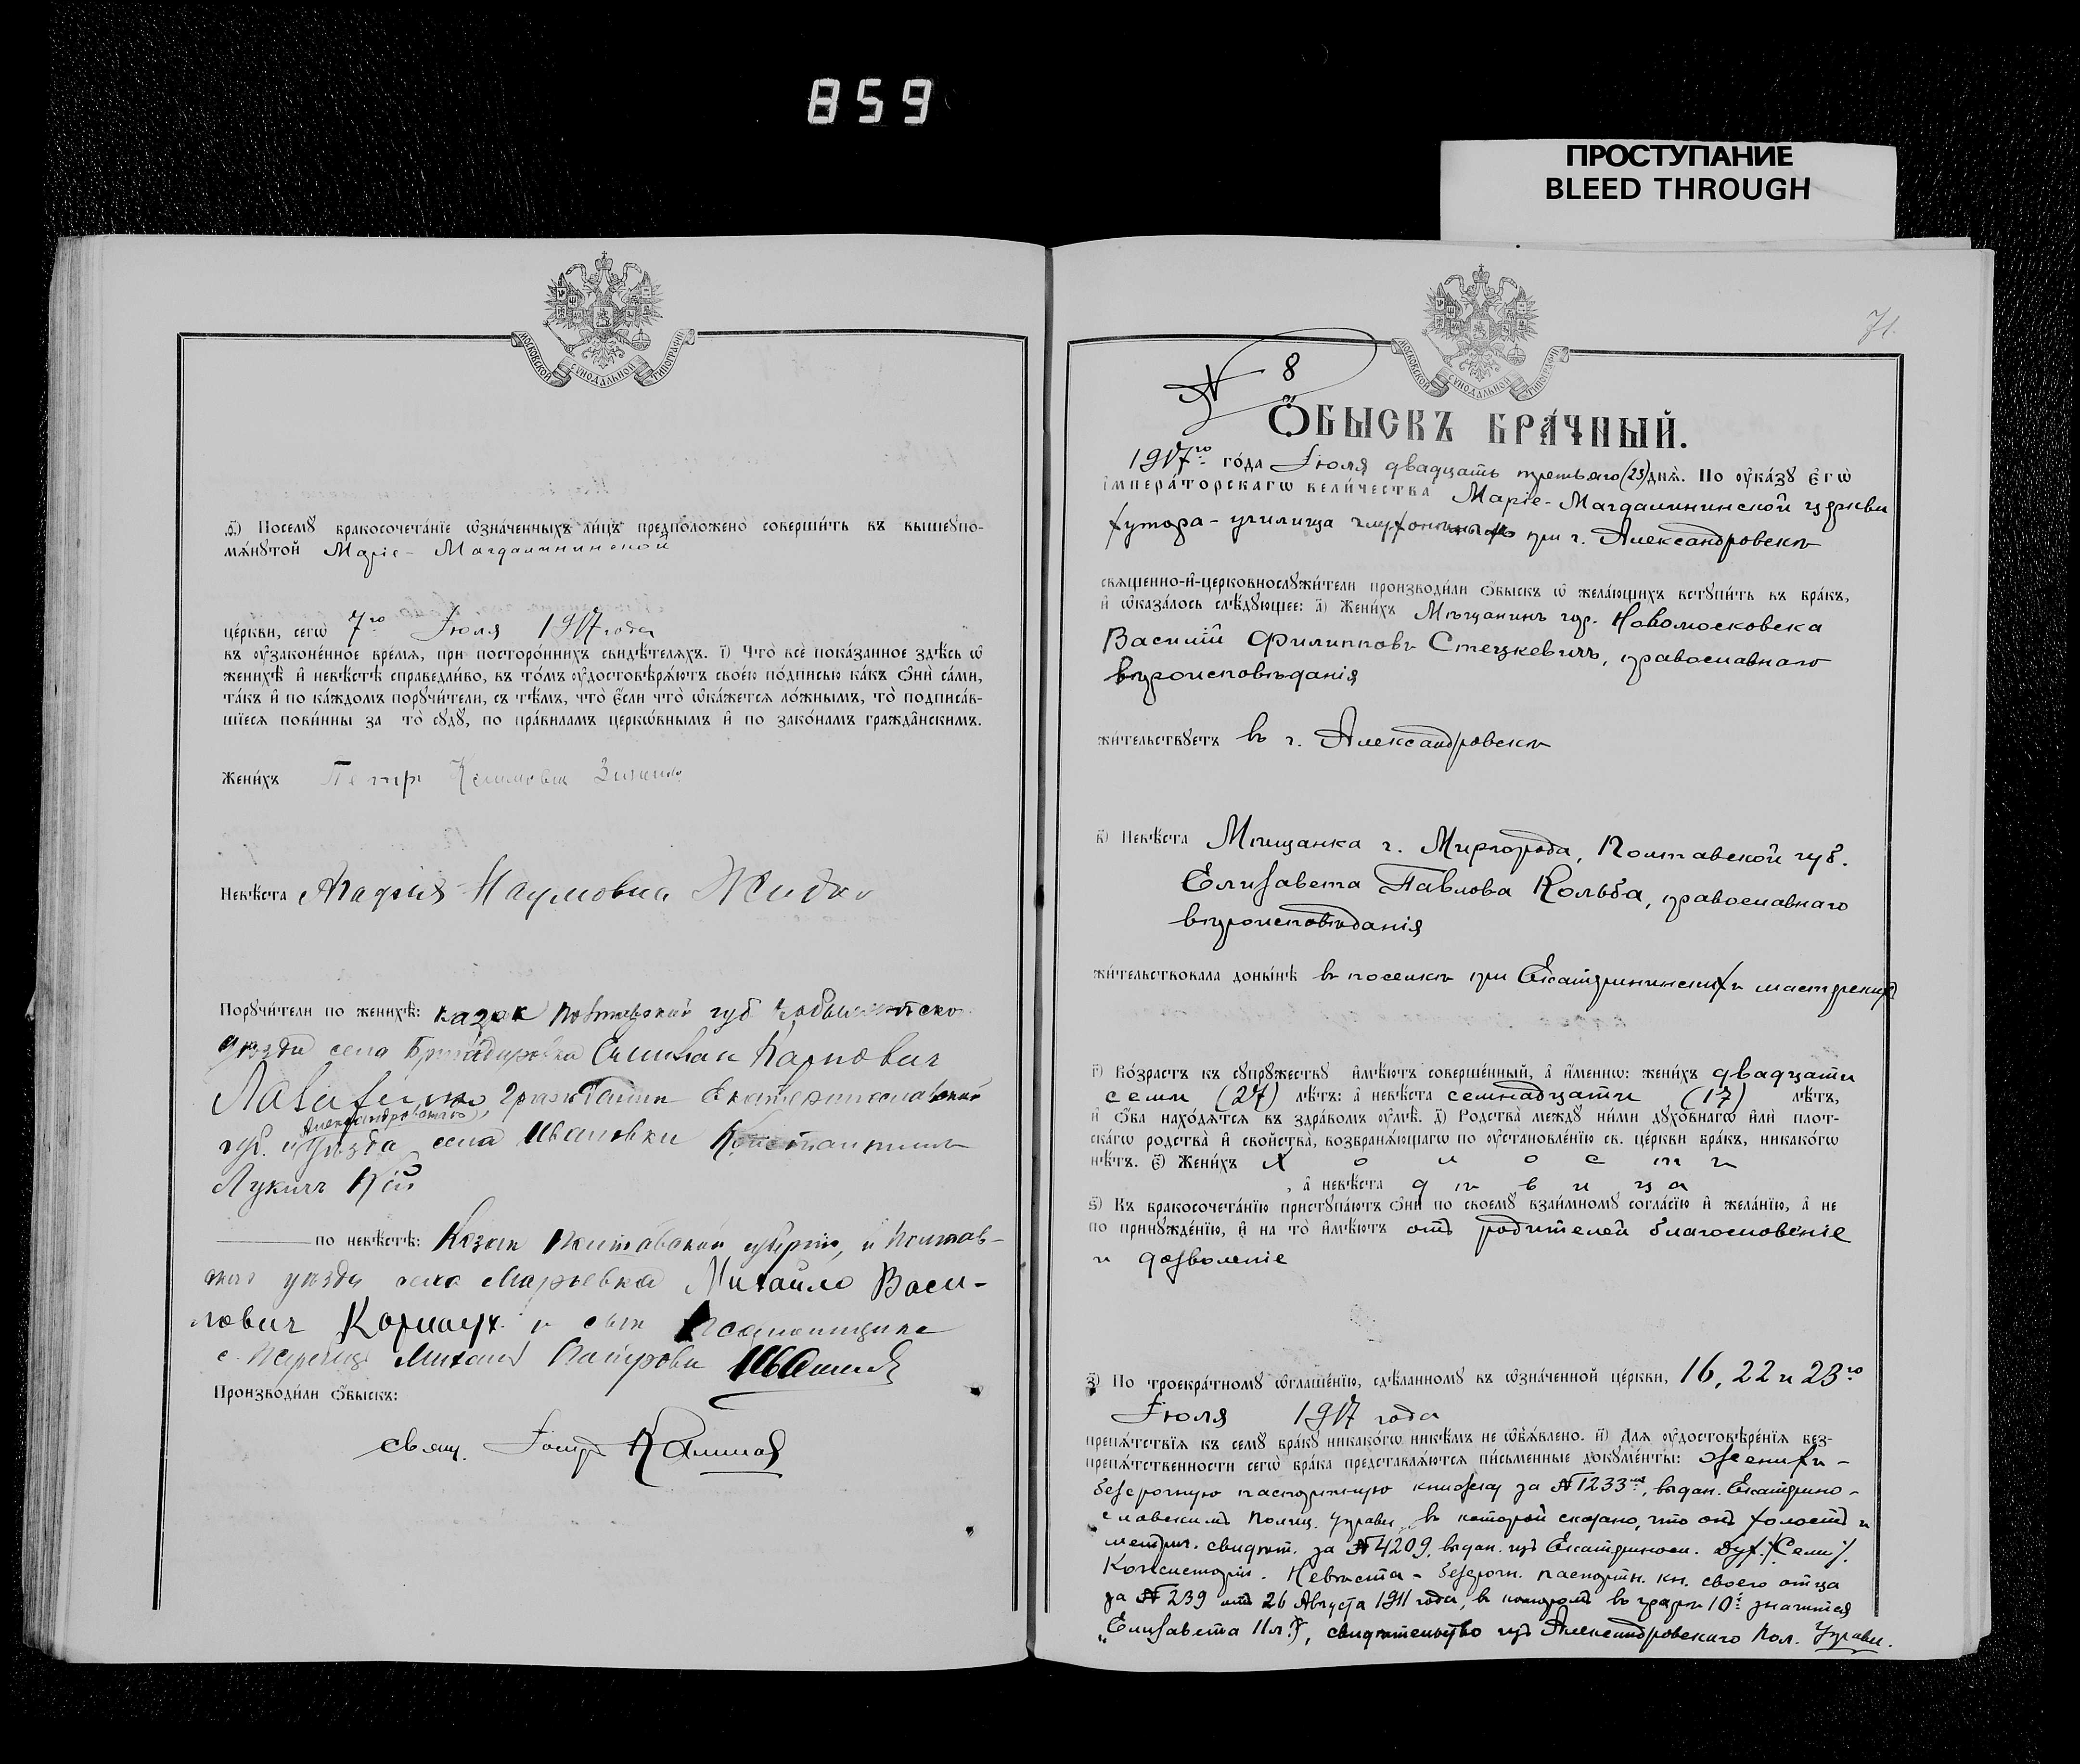 859
ПРОСТУПАНИЕ
BLEED THROUGH
МОСКОВСКОЙ СѴНОДАЛЬНОЙ ТИПОГРАФІИ
ѳ҃) Посемꙋ бракосочета́нїе ѡзна́ченныхъ ли́цъ предположено̀ соверши́ть въ вышеꙋпо-
мѧ́нꙋтой Маріе-Магдалининской
це́ркви, сегѡ̀ 7го Іюля 1917 года
въ ᲂу҆законе́нное вре́мѧ, при посторо́ннихъ свидѣ́телѧхъ. і҃) Что̀ всѐ пока́занное здѣ́сь ѡ
женихѣ̀ и҆ невѣ́стѣ справедли́во, въ то́мъ ᲂу҆достовѣрѧ́ютъ свое́ю по́дписью ка́къ ѻ҆нѝ са́ми,
та́къ и҆ по ка́ждомъ порꙋчи́тели, съ тѣ́мъ, что̀ є҆́сли что̀ ѡ҆ка́жетсѧ ло́жнымъ, то̀ подписа́в-
шїесѧ пови́нны за то̀ сꙋдꙋ̀, по пра́вилами церко́внымъ и҆ по зако́намъ гражда́нскимъ.
Жени́хъ Петр Климовъ
Невѣ́ста Марфия Наумовна Жидко
Порꙋчи́тели по женихѣ̀: казак Полтавской губ
уезда села Емилиан Карпович
гражданин Екатеринославской
Александровского
губ. и Уезда села Ивановки Константин
Лукичъ Кій
по невѣ́стѣ: Козак Полтавской губернии, и Полтав-
уезда села Марьевка Михайло Васи-
лович Корнаух и сын
с. Михаил
Производи́ли ѻ҆́быскъ:
свящ.
71
МОСКОВСКОЙ СѴНОДАЛЬНОЙ ТИПОГРАФІИ
№ 8
Ѻ҆́БЫСКЪ БРА́ЧНЫЙ.
1917го го́да Іюля двадцать третьяго (23) днѧ̀. По ᲂу҆ка́зꙋ Є҆гѡ̀
І҆мпера́торскагѡ вели́чества Маріе-Магдалининской церкви
хутора-училища глухонѣмыхъ при г. Александровскѣ
свѧще́нно-и҆-церковнослꙋжи́тели производи́ли ѻ҆́быскъ ѡ жела́ющихъ встꙋпи́ть въ бра́къ,
и҆ ѡ҆каза́лось слѣ́дꙋющее: а҃) Жени́хъ Мѣщанинъ гор. Новомосковска
Василій Филипповъ Стецкевичъ, православнаго
вѣроисповѣданія
жи́тельствꙋетъ въ г. Александровскѣ
в҃) Невѣ́ста Мѣщанка г. Миргорода, Полтавской губ.
Елизавета Павлова Кольба, православнаго
вѣроисповѣданія
жи́тельствовала доны́нѣ въ поселкѣ при Екатерининскихъ мастерскихъ
г҃) Во́зрастъ къ сꙋпрꙋ́жествꙋ и҆мѣ́ютъ соверше́нный, а҆ и҆́менно: жени́хъ двадцати
семи (27) лѣ́тъ: а҆ невѣ́ста семнадцати (17) лѣ́тъ,
и҆ ѻ҆́ба нахо́дѧтсѧ въ здра́вомъ ᲂу҆мѣ̀. д҃) Родства̀ междꙋ̀ ни́ми дꙋхо́внагѡ и҆лѝ плот-
ска́гѡ родства̀ и҆ сво́йства, возбранѧ́ющагѡ по ᲂу҆становле́нїю св. це́ркви бра́къ, никако́гѡ
нѣ́тъ. є҃) Жени́хъ холостъ
, а҆ невѣ́ста дѣвица
ѕ҃) Къ бракосочета́нїю пристꙋпа́ютъ ѻ҆нѝ по своемꙋ̀ взаи́мномꙋ согла́сїю и҆ жела́нїю, а҆ не
по принꙋжде́нїю, и҆ на то̀ и҆мѣ́ютъ отъ родителей благословеніе
и дозволеніе
з҃) По троекра́тномꙋ ѡ҆глаше́нїю, сдѣ́ланномꙋ въ ѡзна́ченной це́ркви, 16, 22 и 23го
Іюля 1917 года
препѧ́тствїѧ къ семꙋ̀ бра́кꙋ никако́гѡ никѣ́мъ не ѡ҆б̾ѧ́влено. и҃) Длѧ̀ ᲂу҆достовѣре́нїѧ без-
препѧ́тственности сегѡ̀ бра́ка представлѧ́ютсѧ пи́сьменные докꙋме́нты: женихъ -
безсрочную паспортную книжку за № 1233мъ, выдан. Екатерино-
славскимъ Полиц. Управл., въ которой сказано, что онъ холостъ и
метрич. свидѣт. за № 4209, выдан. изъ Екатериносл. Дух. /Сем./
Консисторіи. Невѣста - безсрочн. паспортн. кн. своего отца
за № 239 отъ 26 Августа 1911 года, въ которой въ графѣ 10й значится
„Елизавета 11 л.", свидѣтельство изъ Александровскаго Пол. Управл.